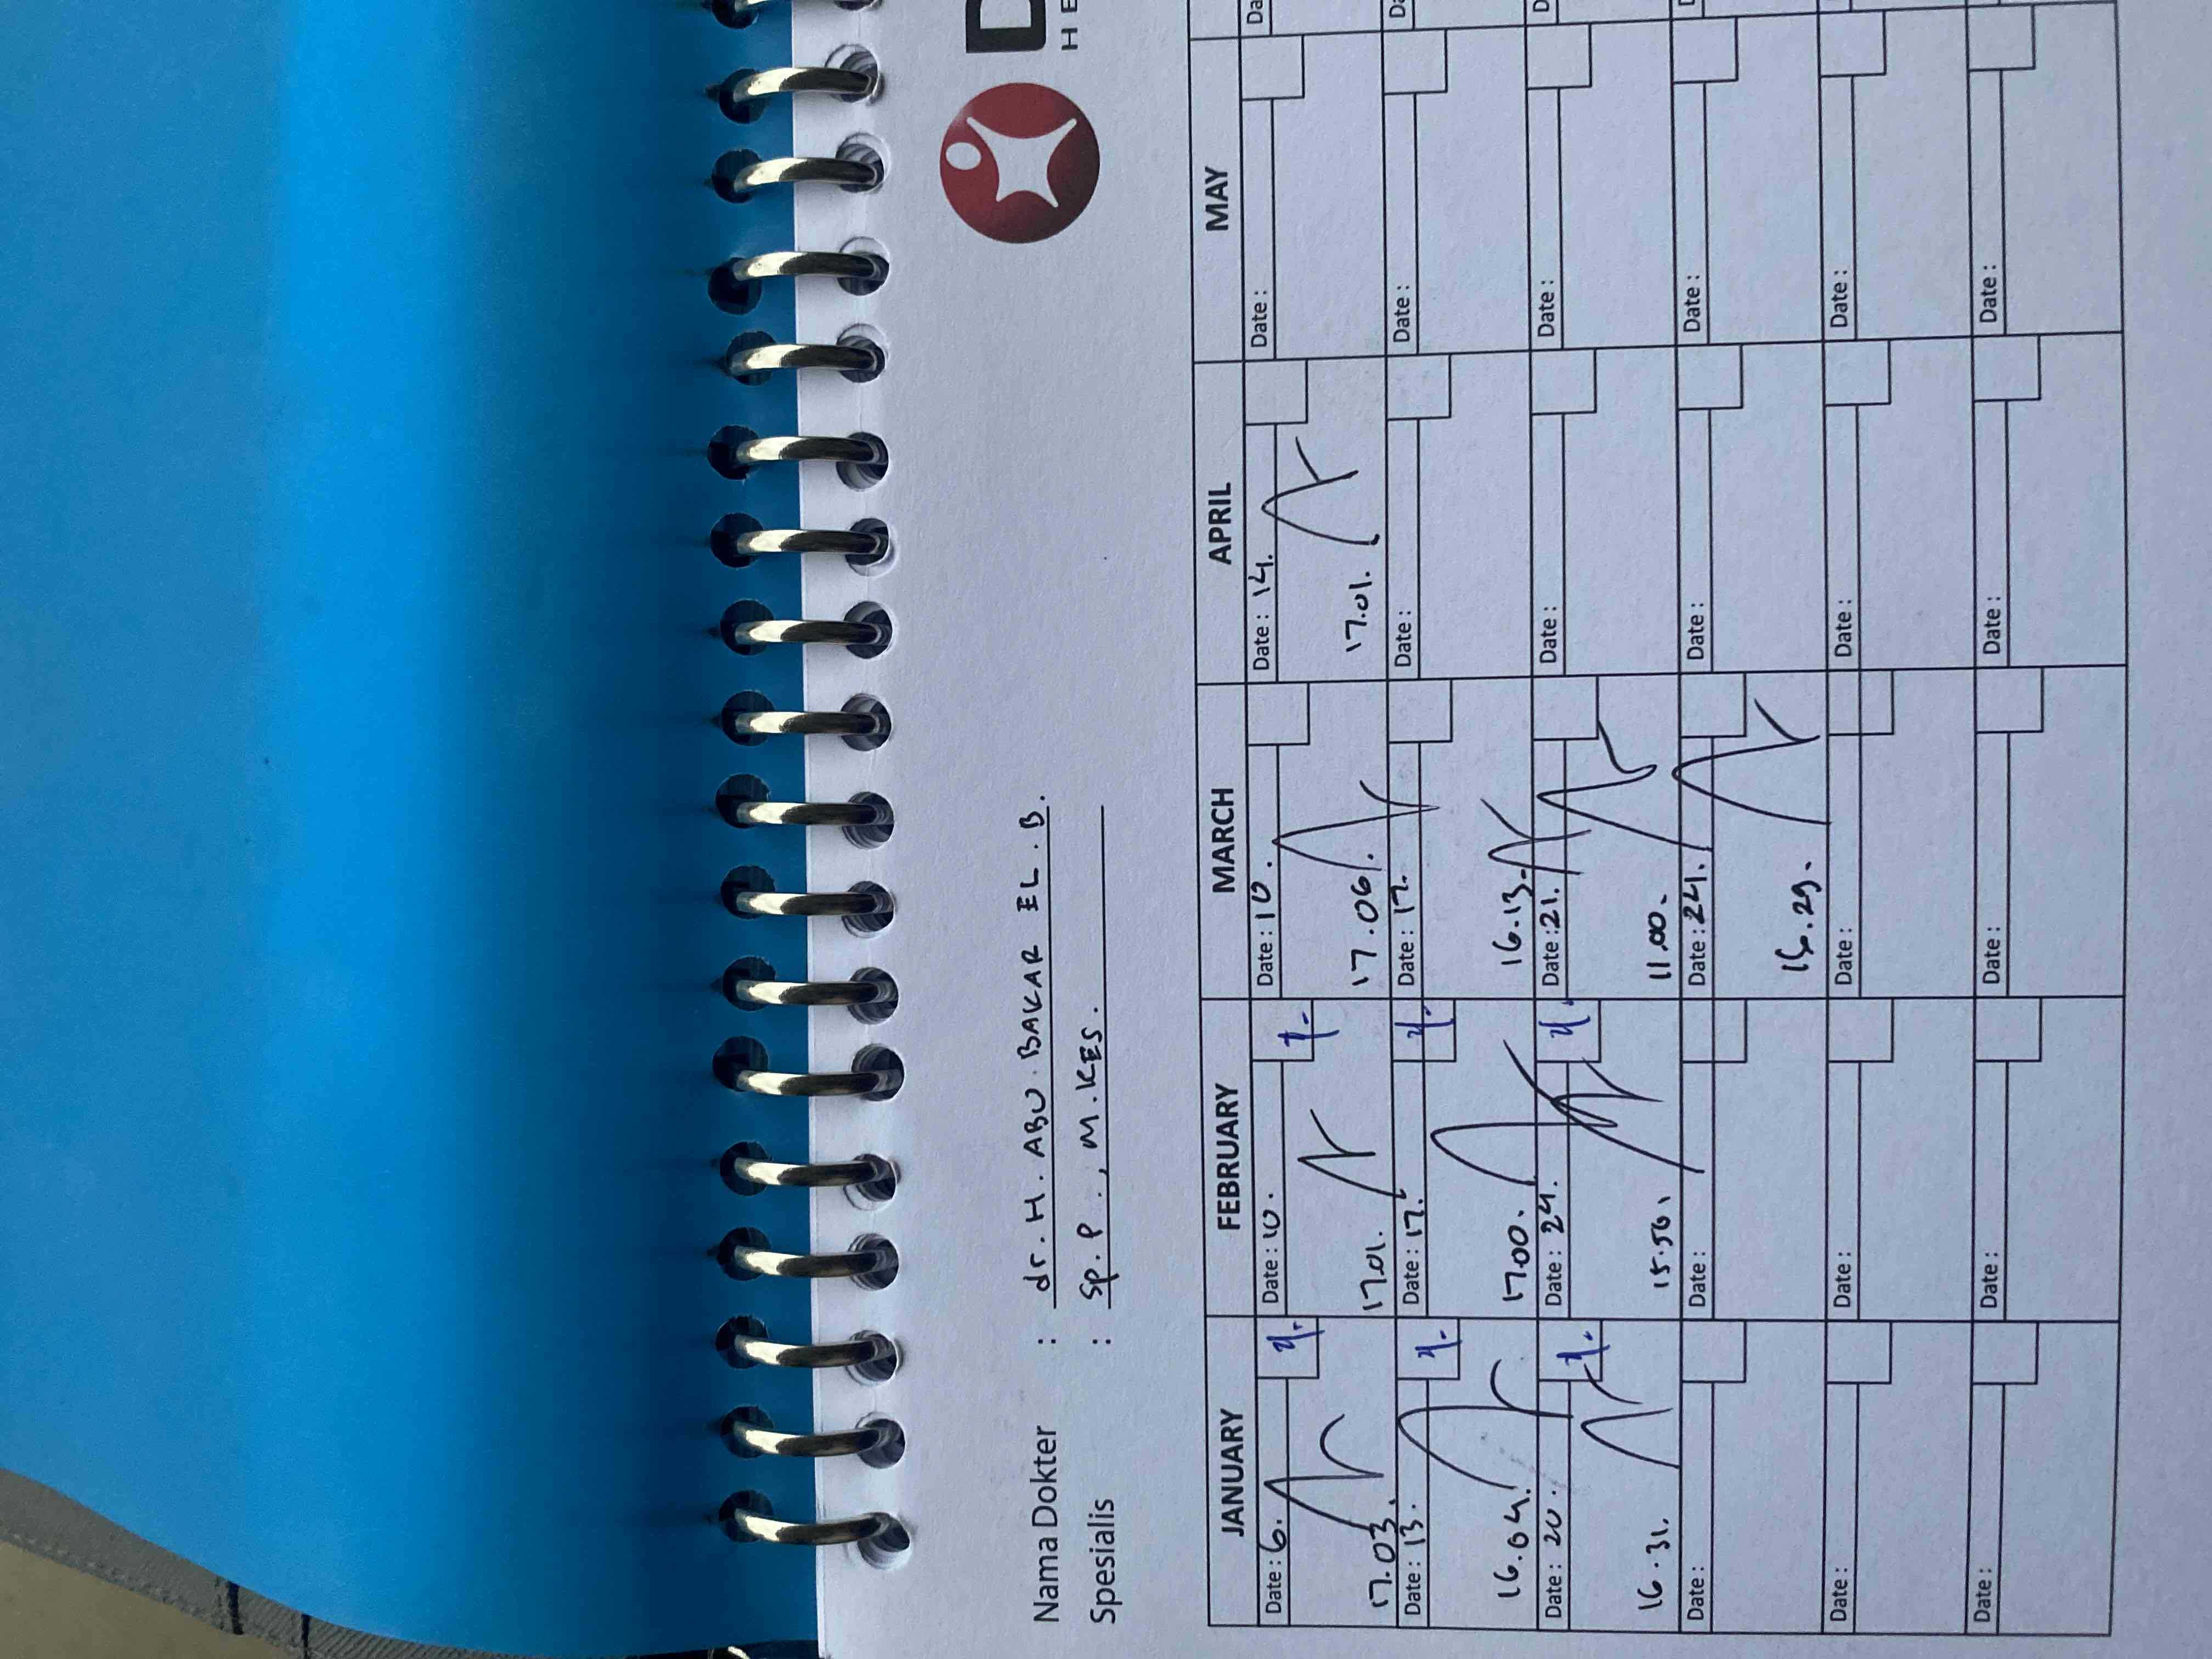 D
HE
Nama Dokter : dr. H. ABU. BAKAR EL. B.
Spesialis : Sp. P., M. KES.
JANUARY FEBRUARY MARCH APRIL MAY
Date : 6. Date : 10. Date : 10. Date : 14. Date : Da
17.03. 17.01. 17.06 17.01.
Date : 13. Date : 17. Date : 17. Date : Date : Da
16.04. 17.00. 16.13.
Date : 20. Date : 24. Date : 21. Date : Date : D
16.31. 15.50. 11.00.
Date : Date : Date : 24. Date : Date : D
16.29.
Date : Date : Date : Date : Date :
Date : Date : Date : Date : Date :